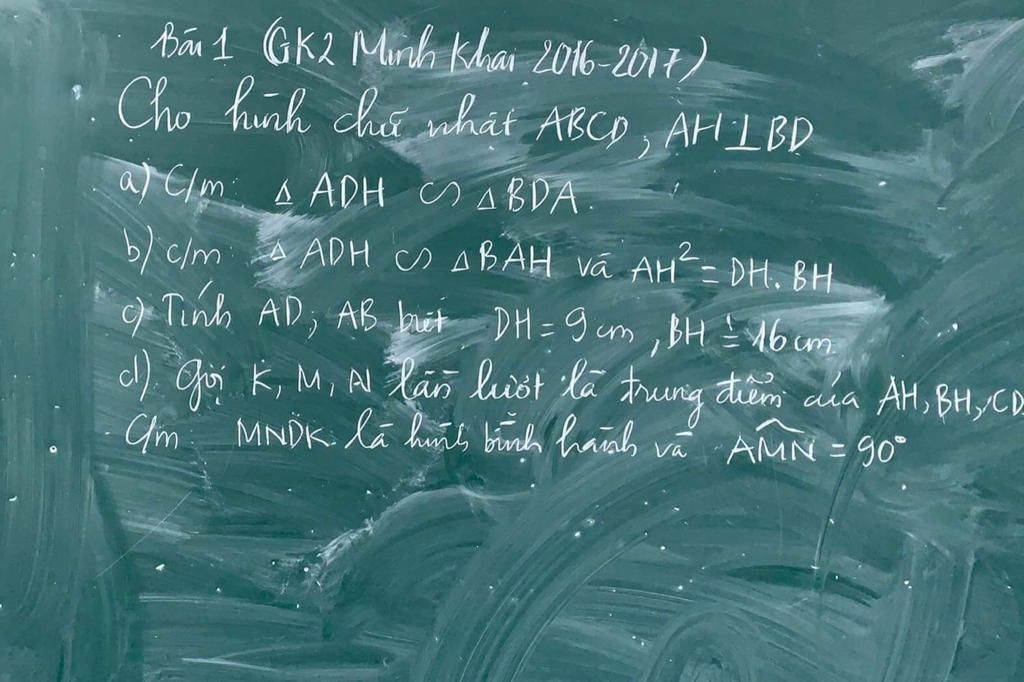 Bài 1 (GK2 Minh Khai 2016-2017)
Cho hình chữ nhật ABCD, AH⊥BD
a) C/m: △ ADH ∽ △BDA.
b) c/m: △ ADH ∽ △BAH và AH² = DH.BH
c) Tính AD; AB biết DH = 9cm, BH = 16cm
d) Gọi K, M, N lần lượt là trung điểm của AH, BH, CD
C/m: MNDK là hình bình hành và AMN = 90°